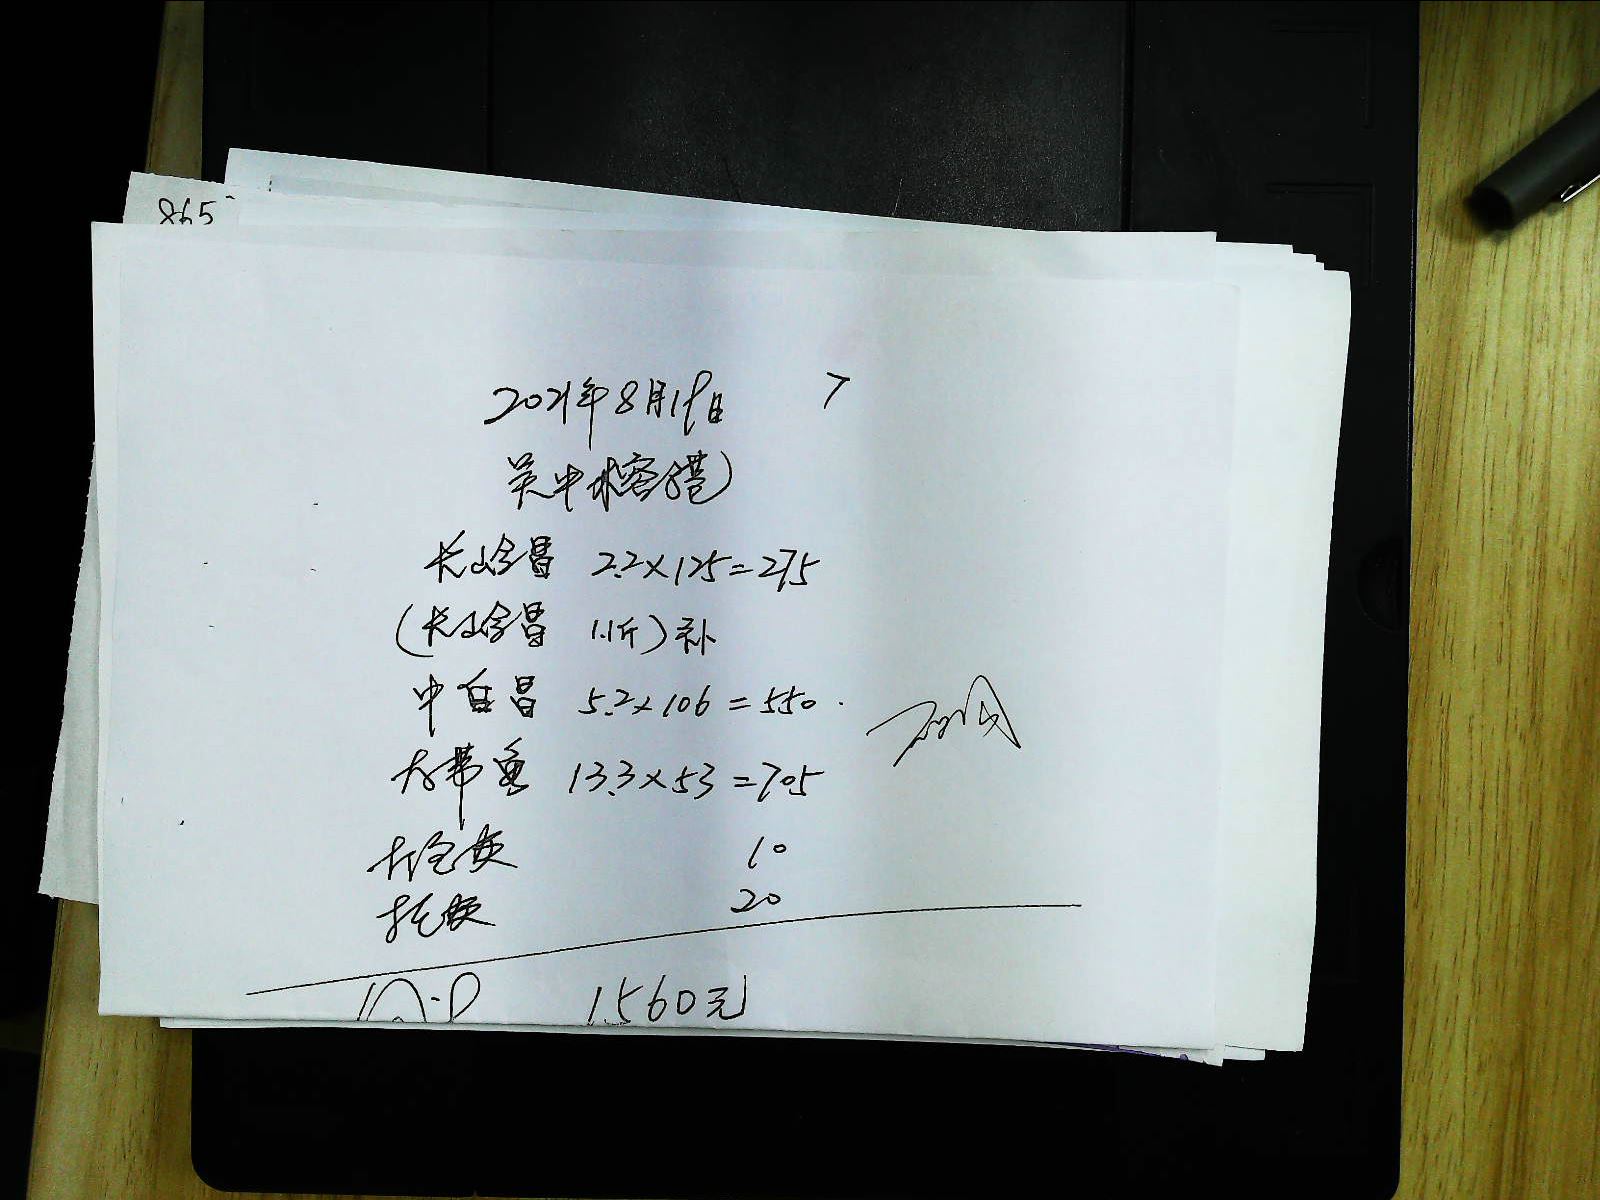 865
2021年8月19日 7
吴中水
长山舍昌 2.2×125=275
(长山舍昌 1.1斤)补
中白昌 5.2×106=550.
大带鱼 13.3×53=705
打包费 10
托费 20
1560元